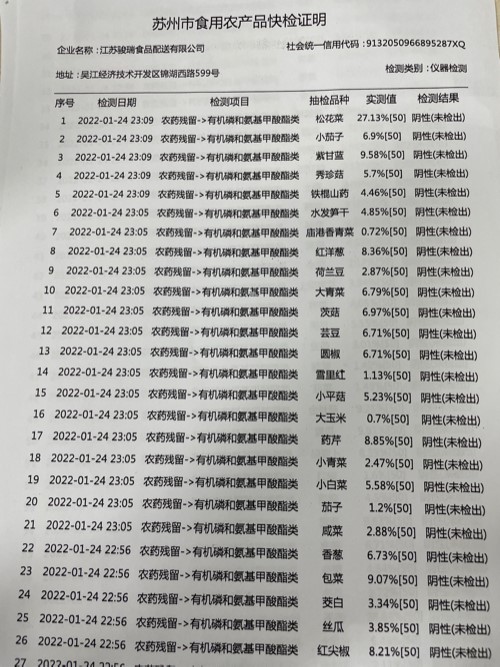 苏州市食用农产品快检证明
企业名称:江苏骏瑞食品配送有限公司 社会统一信用代码:9132050966895287XQ
地址:吴江经济技术开发区锦湖西路599号 检测类别:仪器检测
序号 检测日期 检测项目 抽检品种 实测值 检测结果
1 2022-01-24 23:09 农药残留->有机磷和氨基甲酸酯类 松花菜 27.13%[50] 阴性(未检出)
2 2022-01-24 23:09 农药残留->有机磷和氨基甲酸酯类 小茄子 6.9%[50] 阴性(未检出)
3 2022-01-24 23:09 农药残留->有机磷和氨基甲酸酯类 紫甘蓝 9.58%[50] 阴性(未检出)
4 2022-01-24 23:09 农药残留->有机磷和氨基甲酸酯类 秀珍菇 5.7%[50] 阴性(未检出)
5 2022-01-24 23:09 农药残留->有机磷和氨基甲酸酯类 铁棍山药 4.46%[50] 阴性(未检出)
6 2022-01-24 23:05 农药残留->有机磷和氨基甲酸酯类 水发笋干 4.85%[50] 阴性(未检出)
7 2022-01-24 23:05 农药残留->有机磷和氨基甲酸酯类 庙港香青菜 0.72%[50] 阴性(未检出)
8 2022-01-24 23:05 农药残留->有机磷和氨基甲酸酯类 红洋葱 8.36%[50] 阴性(未检出)
9 2022-01-24 23:05 农药残留->有机磷和氨基甲酸酯类 荷兰豆 2.87%[50] 阴性(未检出)
10 2022-01-24 23:05 农药残留->有机磷和氨基甲酸酯类 大青菜 6.79%[50] 阴性(未检出)
11 2022-01-24 23:05 农药残留->有机磷和氨基甲酸酯类 茨菇 6.97%[50] 阴性(未检出)
12 2022-01-24 23:05 农药残留->有机磷和氨基甲酸酯类 芸豆 6.71%[50] 阴性(未检出)
13 2022-01-24 23:05 农药残留->有机磷和氨基甲酸酯类 圆椒 6.71%[50] 阴性(未检出)
14 2022-01-24 23:05 农药残留->有机磷和氨基甲酸酯类 雪里红 1.13%[50] 阴性(未检出)
15 2022-01-24 23:05 农药残留->有机磷和氨基甲酸酯类 小平菇 5.23%[50] 阴性(未检出)
16 2022-01-24 23:05 农药残留->有机磷和氨基甲酸酯类 大玉米 0.7%[50] 阴性(未检出)
17 2022-01-24 23:05 农药残留->有机磷和氨基甲酸酯类 药芹 8.85%[50] 阴性(未检出)
18 2022-01-24 23:05 农药残留->有机磷和氨基甲酸酯类 小青菜 2.47%[50] 阴性(未检出)
19 2022-01-24 23:05 农药残留->有机磷和氨基甲酸酯类 小白菜 5.58%[50] 阴性(未检出)
20 2022-01-24 23:05 农药残留->有机磷和氨基甲酸酯类 茄子 1.2%[50] 阴性(未检出)
21 2022-01-24 23:05 农药残留->有机磷和氨基甲酸酯类 咸菜 2.88%[50] 阴性(未检出)
22 2022-01-24 22:56 农药残留->有机磷和氨基甲酸酯类 香葱 6.73%[50] 阴性(未检出)
23 2022-01-24 22:56 农药残留->有机磷和氨基甲酸酯类 包菜 9.07%[50] 阴性(未检出)
24 2022-01-24 22:56 农药残留->有机磷和氨基甲酸酯类 茭白 3.34%[50] 阴性(未检出)
25 2022-01-24 22:56 农药残留->有机磷和氨基甲酸酯类 丝瓜 3.85%[50] 阴性(未检出)
26 2022-01-24 22:56 农药残留->有机磷和氨基甲酸酯类 红尖椒 8.21%[50] 阴性(未检出)
27 2022-01-24 22:56